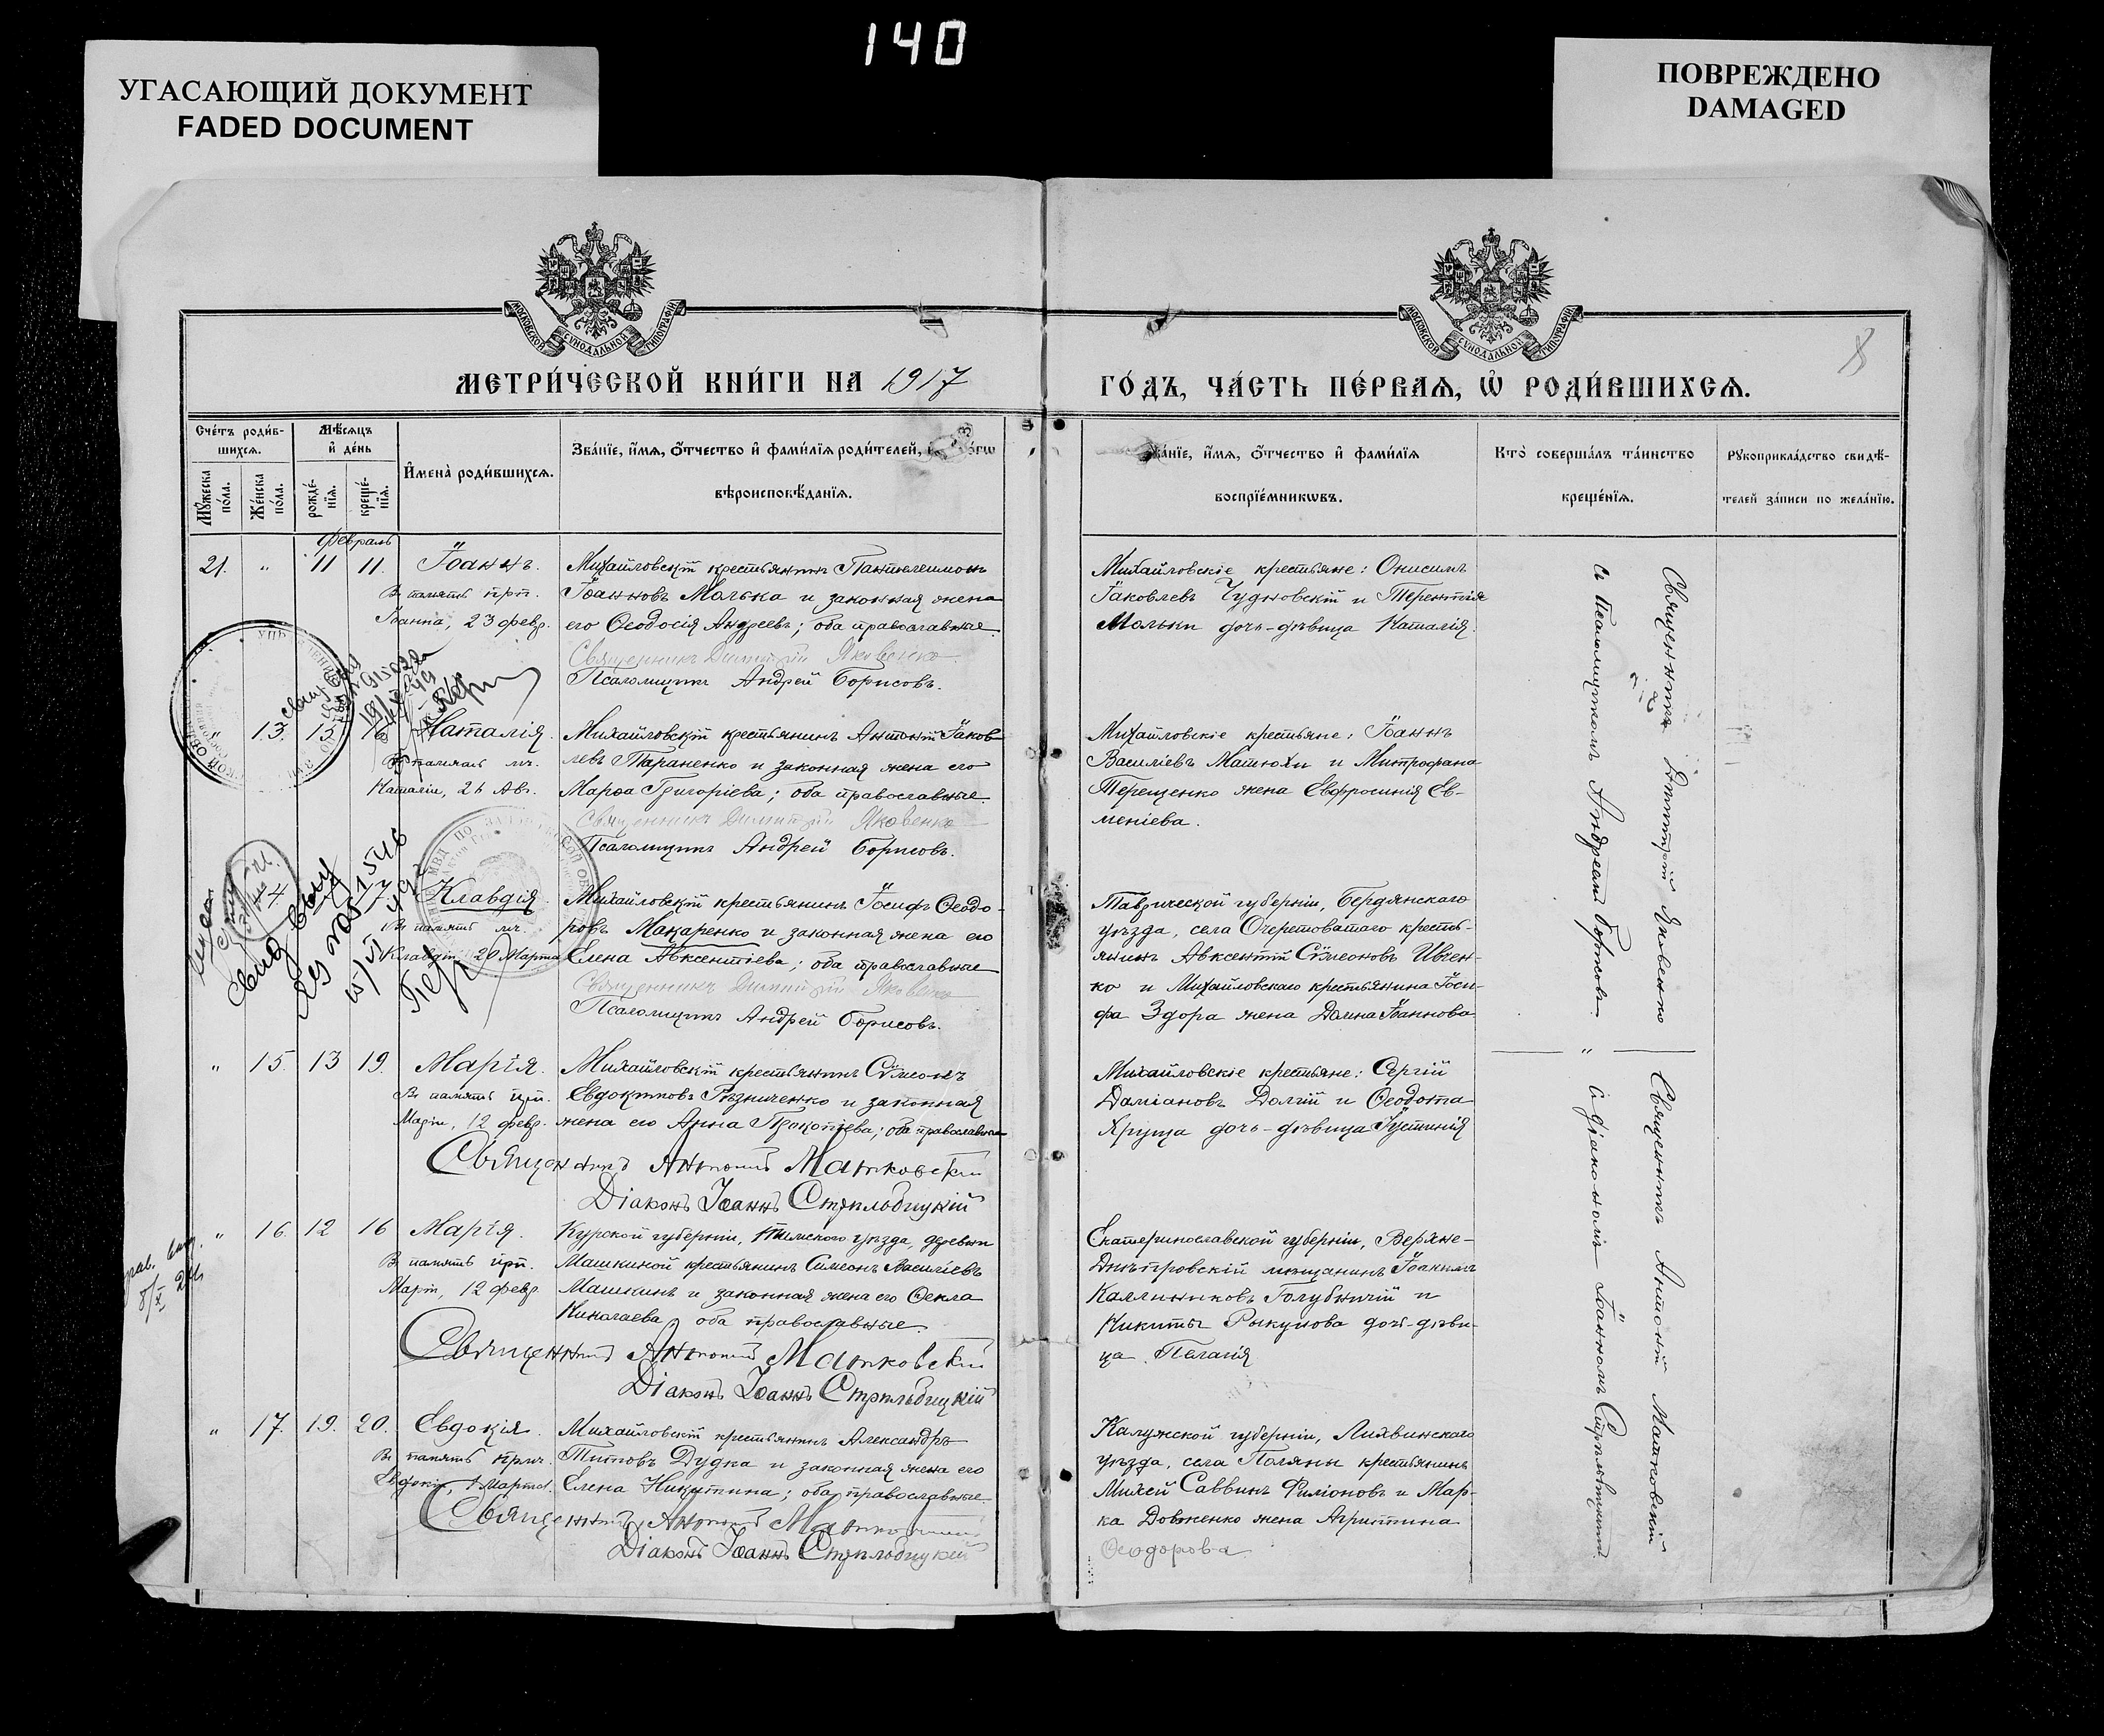 140
УГАСАЮЩИЙ ДОКУМЕНТ
FADED DOCUMENT
ПОВРЕЖДЕНО
DAMAGED
МОСКОВСКОЙ СѴНОДАЛЬНОЙ ТИПОГРАФІИ
МОСКОВСКОЙ СѴНОДАЛЬНОЙ ТИПОГРАФІИ
8
МЕТРИ́ЧЕСКОЙ КНИ́ГИ НА 1917
ГО́ДЪ, ЧА́СТЬ ПЕ́РВАѦ, Ѽ РОДИ́ВШИХСѦ.
Сче́тъ роди́в-
шихсѧ.
Мꙋ́жеска по́ла.
Же́нска по́ла.
Мѣ́сѧцъ
и҆ де́нь
рожде́-
нїѧ.
креще́-
нїѧ.
И҆мена̀ роди́вшихсѧ.
Зва́нїе, и҆́мѧ, ѻ҆́тчество и҆ фами́лїѧ роди́телей,
вѣроисповѣ́данїѧ.
Зва́нїе, и҆́мѧ, ѻ҆́тчество и҆ фами́лїѧ
воспрїе́мникѡвъ.
Кто̀ соверша́лъ та́инство
креще́нїѧ.
Рꙋкоприкла́дство свидѣ́-
телей за́писи по жела́нїю.
Февраль
21. " 11 11. Іоаннъ.
Въ память прп.
Іоанна, 23 февр.
Михайловскій крестьянинъ Пантелеимонъ
Іоанновъ Молька и законная жена
его Ѳеодосія Андреевъ; оба православные.
Священникъ Димитрій Яковенко
Псаломщикъ Андрей Борисовъ.
Михайловскіе крестьяне: Онисимъ
Іаковлевъ Чудновскій и Терентія
Мольки дочь-дѣвица Наталія.
" 13. 15 16 Наталія.
Въ память мч.
Наталіи, 26 Авг.
Михайловскій крестьянинъ Антоній Іаков
левъ Тараненко и законная жена его
Марѳа Григоріева; оба православные.
Священникъ Димитрій Яковенко
Псаломщикъ Андрей Борисовъ.
Михайловскіе крестьяне: Іоаннъ
Василіевъ Матюхи и Митрофана
Терещенко жена Евфросинія Ев-
меніева.
14 Клавдія.
Въ память мч.
Клавдіи 20 Марта
Михайловскій крестьянинъ Іосифъ Ѳеодо-
ровъ Макаренко и законная жена его
Елена Авксентіева; оба православные
Священникъ Димитрій Яковенко
Псаломщикъ Андрей Борисовъ.
Таврической губерніи, Бердянскаго
уѣзда, села Очеретоватаго кресть-
янинъ Авксентій Сѵмеоновъ Ивчен-
ко и Михайловскаго крестьянина Іоси-
фа Здора жена Домна Іоаннова
Свид выд
Священникъ Димитрій Яковенко
съ Псаломщикомъ Андреемъ Борисовъ.
" 15. 13 19. Марія.
Въ память прп.
Маріи, 12 февр.
Михайловскій крестьянинъ Сѵмеонъ
Евдокимовъ Рѣзниченко и законная
жена его Анна Прокопіева; оба православные
Священникъ Антоній Матковскій
Діаконъ Іоаннъ Стрѣльбицкій
Михайловскіе крестьяне: Сергій
Даміановъ Долгій и Ѳеодота
Хруща дочь-дѣвица Іустинія
" 16. 12 16 Марія.
Въ память прп.
Маріи, 12 февр.
Курской губерніи, Тимскаго уѣзда, деревни
Машкиной крестьянинъ Симеонъ Василіевъ
Машкинъ и законная жена его Ѳекла
Николаева оба православные.
Священникъ Антоній Матковскій
Діаконъ Іоаннъ Стрѣльбицкій
Екатеринославской губерніи, Верхне-
Днѣпровскій мѣщанинъ Іоакимъ
Каллиниковъ Голубничій и
Никиты Рыкунова дочь-дѣви-
ца Пелагія
" 17. 19. 20. Евдокія.
Въ память прмч.
Евдокіи, 1 Марта.
Михайловскій крестьянинъ Александръ
Титовъ Дудка и законная жена его
Елена Никитина; оба православные.
Священникъ Антоній Матковскій
Діаконъ Іоаннъ Стрѣльбицкій
Калужской губерніи, Лихвинскаго
уѣзда, села Поляны крестьянинъ
Михей Саввинъ Филіоновъ и Мар-
ка Довженко жена Агриппина
Ѳеодорова
Священникъ Антоній Матковскій
съ діакономъ Іоанномъ Стрѣльбицкимъ